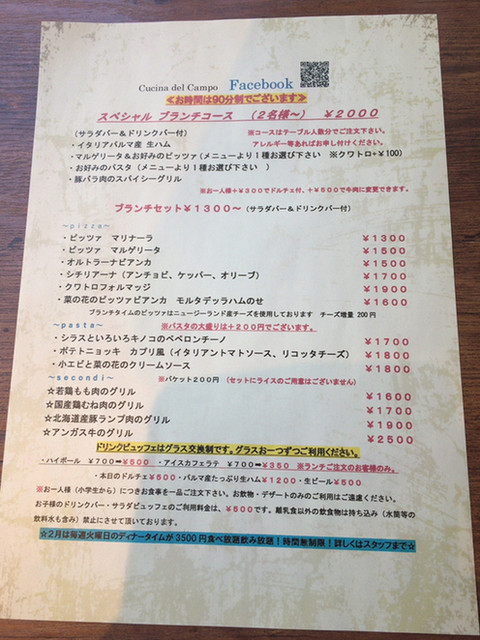 Cucina del Campo Facebook
≪お時間は90分制でございます≫
スペシャル ブランチコース (2名様～) ￥2000
(サラダバー＆ドリンクバー付) ※コースはテーブル人数分でご注文下さい。
・イタリアパルマ産 生ハム アレルギー等あればお申し付けください。
・マルゲリータ＆お好みのピッツァ(メニューより1種お選び下さい ※クワトロ+￥100)
・お好みのパスタ (メニューより1種お選び下さい )
・豚バラ肉のスパイシーグリル
※お一人様＋￥300でドルチェ付、＋￥500で牛肉に変更できます。
ブランチセット￥1300～ (サラダバー＆ドリンクバー付)
～pizza～
・ピッツァ マリナーラ ￥1300
・ピッツァ マルゲリータ ￥1500
・オルトラーナビアンカ ￥1500
・シチリアーナ (アンチョビ、ケッパー、オリーブ) ￥1700
・クワトロフォルマッジ ￥1900
・菜の花のピッツァビアンカ モルタデッラハムのせ ￥1600
ブランチタイムのピッツァはニュージーランド産チーズを使用しております チーズ増量 200円
～pasta～ ※パスタの大盛りは＋200円でございます。
・シラスといろいろキノコのペペロンチーノ ￥1700
・ポテトニョッキ カプリ風 (イタリアントマトソース、リコッタチーズ) ￥1800
・小エビと菜の花のクリームソース ￥1800
～secondi～ ※バケット200円 (セットにライスのご用意はございません)
☆若鶏もも肉のグリル ￥1600
☆国産鶏むね肉のグリル ￥1700
☆北海道産豚ランプ肉のグリル ￥1900
☆アンガス牛のグリル ￥2500
ドリンクビュッフェはグラス交換制です。グラスお一つずつご利用ください。
・ハイボール ￥700➡￥500 ・アイスカフェラテ ￥700➡￥350 ※ランチご注文のお客様のみ。
・本日のドルチェ￥500 ・パルマ産たっぷり生ハム￥1200 ・生ビール￥500
※お一人様(小学生から)につきお食事を一品ご注文下さい。お飲物・デザートのみのご利用はご遠慮ください。
お子様のドリンクバー・サラダビュッフェのご利用料金は、￥500です。離乳食以外の飲食物は持ち込み (水筒等の
飲料水も含み) 禁止にさせて頂いております。
☆2月は毎週火曜日のディナータイムが3500円食べ放題飲み放題！時間無制限！詳しくはスタッフまで☆